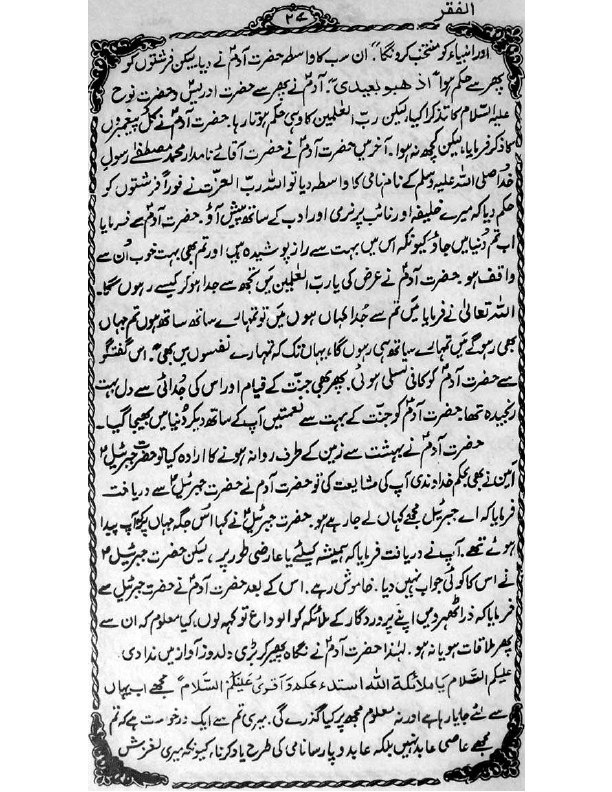 الفقر
۲۷
اور انبیاء کو منتخب کروں گا"۔ ان سب کا واسطہ حضرت آدمؑ نے دیا۔ لیکن فرشتوں کو
پھر سے حکم ہوا "اذهبو بعیدی"۔ آدمؑ نے پھر سے حضرت ادریسؑ و حضرت نوح
علیہ السّلام کا تذکرا کیا، لیکن ربّ العٰلمین کا وہی حکم ہوتا رہا۔ حضرت آدمؑ نے کُل پیغمبروں
کا ذکر فرمایا، لیکن کچھ نہ ہوا۔ آخر میں حضرت آدمؑ نے حضرت آقائے نامدار محمد مصطفےٰ رسولِ
خدا صلی اللہ علیہ وسلم کے نامِ نامی کا واسطہ دیا تو اللہ ربّ العزّت نے فوراً فرشتوں کو
حکم دیا کہ میرے خلیفہ اور نائب پر نرمی اور ادب کے ساتھ پیش آؤ۔ حضرت آدمؑ سے فرمایا
اب تم دُنیا میں جاؤ کیونکہ اس میں بہت سے راز پوشیدہ ہیں اور تم بھی بہت خوب اُن سے
واقف ہو۔ حضرت آدمؑ نے عرض کی یا ربّ العٰلمین میں تجھ سے جدا ہو کر کیسے رہوں گا۔
اللہ تعالیٰ نے فرمایا میں تم سے جُدا کہاں ہوں میں تو تمہارے ساتھ ساتھ ہوں تم جہاں
بھی رہو گے میں تمہارے ساتھ ہی رہوں گا، یہاں تک کہ تمہارے نفسوں میں بھی"۔ اس گفتگو
سے حضرت آدمؑ کو کافی تسلی ہوئی۔ پھر بھی جنّت کے قیام اور اس کی جُدائی سے دل بہت
رنجیدہ تھا۔ حضرت آدمؑ کو جنّت کے بہت سے نعمتیں آپ کے ساتھ دیکر دُنیا میں بھیجا گیا۔
حضرت آدمؑ نے بہشت سے زمین کے طرف روانہ ہونے کا ارادہ کیا تو حضرت جبرئیلؑ
امین نے بھی بحکم خداوندی آپ کی مشایعت کی تو حضرت آدمؑ نے حضرت جبرئیلؑ سے دریافت
فرمایا کہ اے جبرئیل مجھے کہاں لے جا رہے ہو۔ حضرت جبرئیلؑ نے کہا اُس جگہ جہاں پر آپ پیدا
ہوئے تھے۔ آپ نے دریافت فرمایا کہ ہمیشہ کیلئے یا عارضی طور پر، لیکن حضرت جبرئیلؑ
نے اس کا کوئی جواب نہیں دیا۔ خاموش رہے۔ اس کے بعد حضرت آدمؑ نے حضرت جبرئیلؑ سے
فرمایا کہ ذرا ٹھہرو میں اپنے پروردگار کے ملائکہ کو الوداع تو کہہ لوں، کیا معلوم کہ ان سے
پھر ملاقات ہو یا نہ ہو۔ لہٰذا حضرت آدمؑ نے نگاہ پھیر کر بڑی دلدوز آواز میں ندا دی
علیکم السّلام یا ملائکة اللہ استدء عکمد و آقوئ علیکم السّلام" مجھے اب یہاں
سے لئے جایا رہا ہے اور نہ معلوم مجھ پر کیا گذرے گی۔ میری تم سے ایک درخواست ہے کہ تم
مجھے عاصی عابد نہیں بلکہ عابد و پارسا نامی کی طرح یاد کرنا، کیونکہ میری لغزش